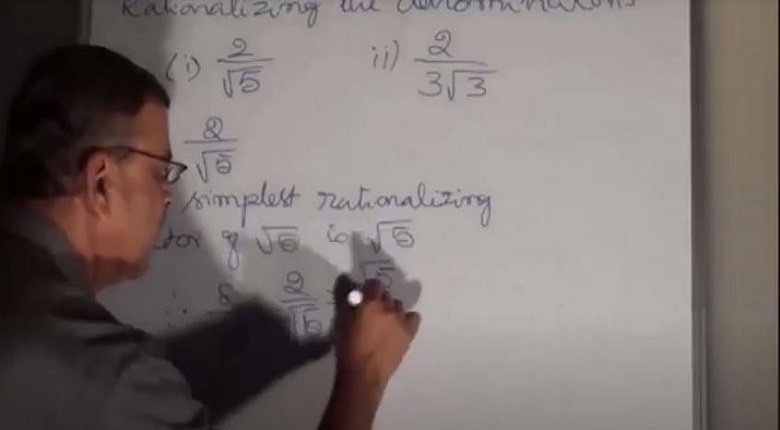 Rationalizing the denominators
(i) 2/√5 ii) 2/3√3
2/√5
simplest rationalizing
√5 is √5
∴ 2/√5 √5